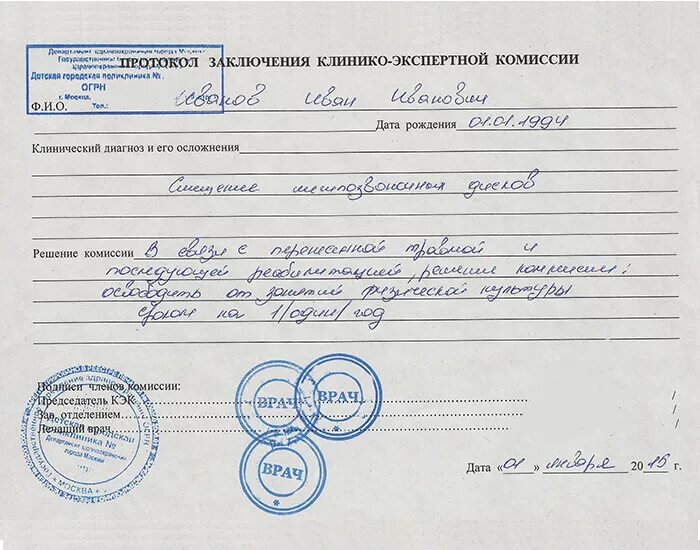 Департамент здравоохранения города Москвы
Государственное
ПРОТОКОЛ ЗАКЛЮЧЕНИЯ КЛИНИКО-ЭКСПЕРТНОЙ КОМИССИИ
Детская городская поликлиника №
ОГРН
г. Москва, Тел.:
Ф.И.О. Иванов Иван Иванович
Дата рождения 01.01.1994
Клинический диагноз и его осложнения
Смещение межпозвоночных дисков
Решение комиссии В связи с перенесенной травмой и
последующей реабилитацией, решение комиссии:
освободить от занятий физической культуры
сроком на 1/один/ год
Подписи членов комиссии:
Председатель КЭК
Зав. отделением
Лечащий врач
ВРАЧ
ВРАЧ
ВРАЧ
Детская городская
поликлиника №
Департамент здравоохранения
города Москвы
МОСКВА
Дата «01» января 2015 г.